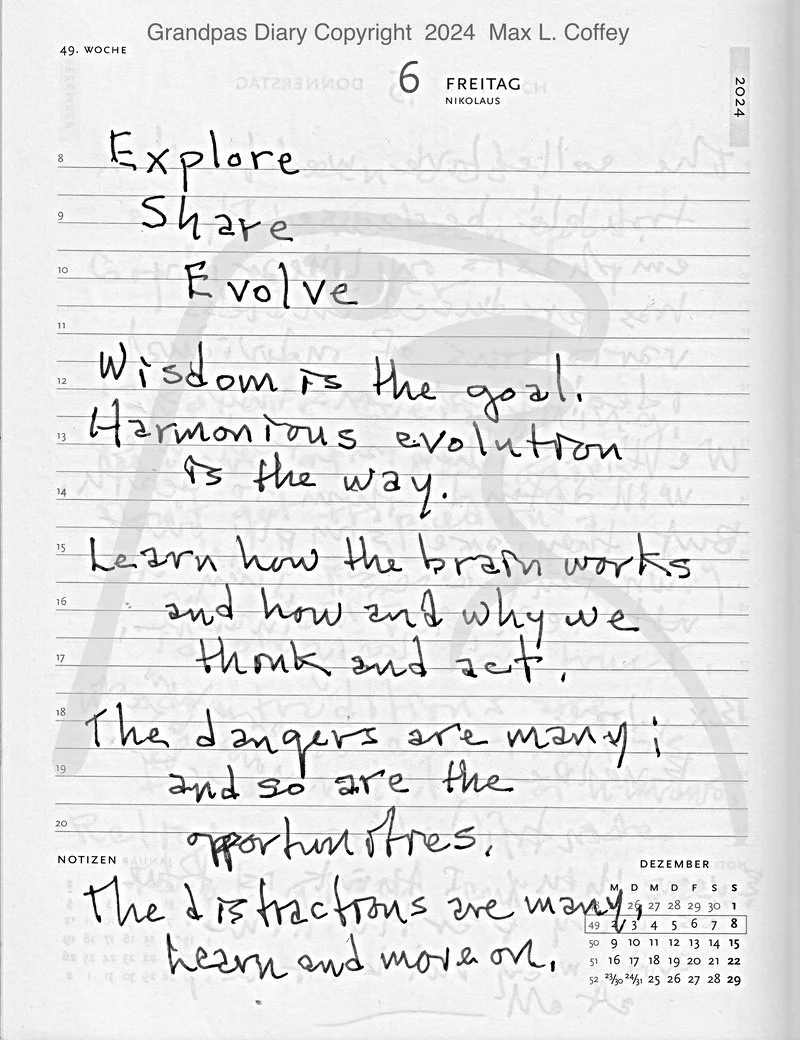 Grandpas Diary Copyright 2024 Max L. Coffey
49. WOCHE
6 FREITAG
NIKOLAUS
2024
8 Explore
9 Share
10 Evolve
11
12 Wisdom is the goal.
13 Harmonious evolution
is the way.
14
15 Learn how the brain works
16 and how and why we
17 think and act.
18 The dangers are many;
19 and so are the
20 opportunities.
NOTIZEN
The distractions are many,
learn and move on.
DEZEMBER
M D M D F S S
26 27 28 29 30 1
49 2 3 4 5 6 7 8
50 9 10 11 12 13 14 15
51 16 17 18 19 20 21 22
52 23/30 24/31 25 26 27 28 29